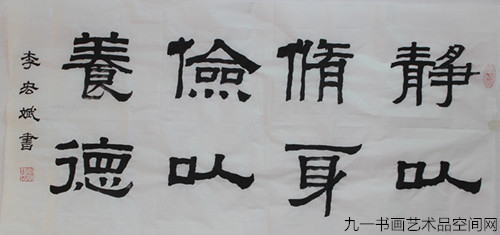 静以
脩身
儉以
養德
李宏斌書
九一书画艺术品空间网